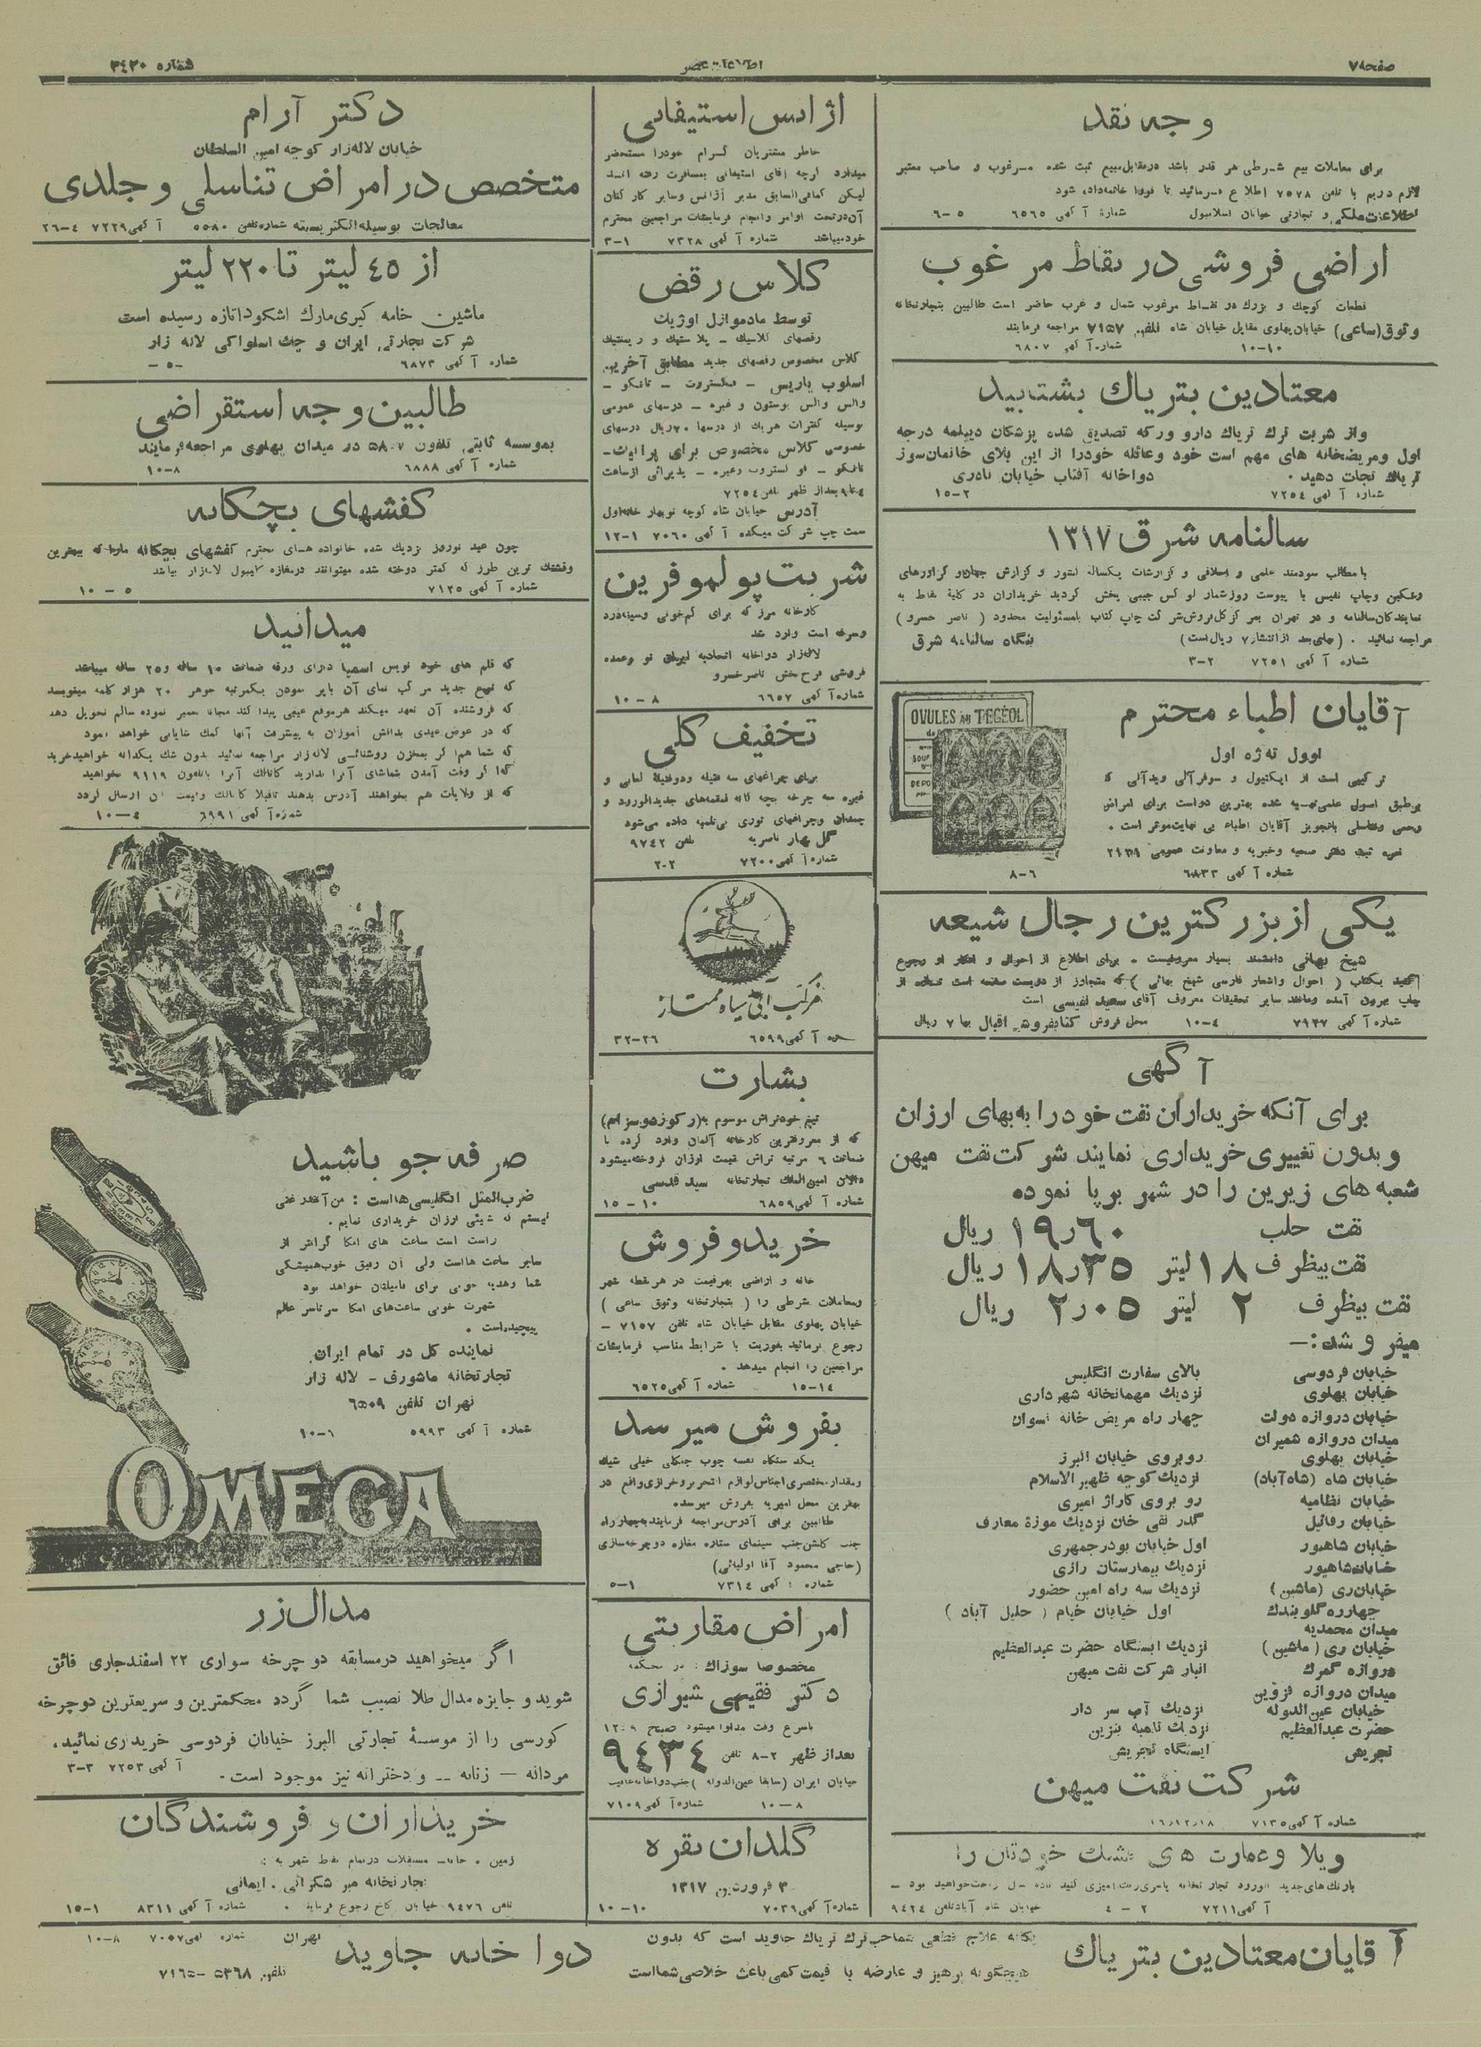 صفحه ۷
شماره ۳۴۳۰
وجه نقد
برای معاملات بیع شرطی هر قدر باشد درمقابل مبیع ثبت شده مرغوب و صاحب معتبر
لازم داریم با تلفن ۷۵۷۸ اطلاع فرمائید تا فورا خاتمه داده شود
و تجارتی خیابان اسلامبول شمارهٔ آگهی ۶۵۶۵ ۵-۶
اراضی فروشی در نقاط مرغوب
قطعات کوچک و بزرک در نقاط مرغوب شمال و غرب حاضر است طالبین بتجارتخانه
وثوق (ساعی) خیابان پهلوی مقابل خیابان شاه تلفن ۷۱۵۷ مراجعه فرمایند
شماره آگهی ۶۸۰۷ ۱۰-۱۰
معتادین بتریاك بشتابید
واز شربت ترك تریاك دارو ورکه تصدیق شده پزشکان دیپلمه درجه
اول ومریضخانه های مهم است خود وعائله خودرا از این بلای خانمان‌سوز
تریاك نجات دهید . دواخانه آفتاب خیابان نادری
شماره آگهی ۷۲۵۴ ۲-۱۵
سالنامه شرق ۱۳۱۷
با مطالب سودمند علمی و اخلاقی و گزارشات یکساله کشور و گزارش جهان و گراورهای
رنگین وچاپ نفیس با پیوست روزشمار لوکس جیبی پخش گردید خریداران در کلیهٔ نقاط به
نمایندگان سالنامه و در تهران بمرکز کل فروش شرکت چاپ کتاب بامسئولیت محدود ( ناصر خسرو )
مراجعه نمائید . (جای بعد از انتشار ۷ ریال است) بنگاه سالنامه شرق
شماره آگهی ۷۲۵۱ ۲-۳
آقایان اطباء محترم
اوول ته‌ژه اول
ترکیبی است از ایکتیول و سوفرآلی ویدآلی که
برطبق اصول علمی تهیه شده بهترین دواست برای امراض
رحمی وتناسلی باتجویز آقایان اطباء بی نهایت موثر است .
نمره ثبت دفتر صحیه وخیریه و معاونت عمومی
شماره آگهی ۶۸۳۳ ۶-۸
OVULES AU TEGÉOL
یکی از بزرگترین رجال شیعه
شیخ بهائی دانشمند بسیار معروفیست - برای اطلاع از احوال و افکار او رجوع
کنید بکتاب ( احوال واشعار فارسی شیخ بهائی ) که متجاوز از دویست صفحه است تازه از
چاپ بیرون آمده ومانند سایر تحقیقات معروف آقای سعید نفیسی است
شماره آگهی ۷۹۴۷ ۴-۱۰ محل فروش کتابفروشی اقبال بها ۷ ریال
آگهی
برای آنکه خریداران نفت خودرا به بهای ارزان
وبدون تغییری خریداری نمایند شرکت نفت میهن
شعبه های زیرین را در شهر برپا نموده
نفت حلب ۱۹٫۶۰ ریال
نفت بیظرف ۱۸ لیتر ۱۸٫۳۵ ریال
نفت بیظرف ۲ لیتر ۲٫۰۵ ریال
میفروشد:—
خیابان فردوسی بالای سفارت انگلیس
خیابان پهلوی نزدیك مهمانخانه شهرداری
خیابان دروازه دولت چهار راه مریض خانه نسوان
میدان دروازه شمیران
خیابان پهلوی روبروی خیابان البرز
خیابان شاه (شاه‌آباد) نزدیك کوچه ظهیر الاسلام
خیابان نظامیه رو بروی گاراژ امیری
خیابان رفائیل گذر تقی خان نزدیك موزهٔ معارف
خیابان شاهپور اول خیابان بوذرجمهری
خیابان شاهپور نزدیك بیمارستان رازی
خیابان ری (ماشین) نزدیك سه راه امین حضور
چهارراه گلوبندك اول خیابان خیام ( جلیل آباد )
میدان محمدیه
خیابان ری (ماشین) نزدیك ایستگاه حضرت عبدالعظیم
دروازه گمرك انبار شرکت نفت میهن
میدان دروازه قزوین
خیابان عین‌الدوله نزدیك آب سر دار
حضرت عبدالعظیم نزدیك تلمبه بنزین
تجریش ایستگاه تجریش
شرکت نفت میهن
شماره آگهی ۷۱۳۵ ۱۶٫۱۲٫۱۸
ویلا وعمارت های قشنگ خودتان را
آگهی ۷۲۱۱ ۲-۴ خیابان شاه آباد تلفن ۹۴۲۴
آژانس استیفانی
خاطر مشتریان گرام خودرا مستحضر
میدارد گرچه آقای استیفانی بمسافرت رفته اند
لیکن کمافی‌السابق مدیر آژانس وسایر کارکنان
آن درتحت اوامر وانجام فرمایشات مراجعین محترم
خود میباشد شماره آگهی ۷۳۲۸ ۱-۳
کلاس رقص
توسط مادموازل اوژیات
رقصهای کلاسیك - پلاستیك و ریتمیك
کلاس مخصوص رقصهای جدید مطابق آخرین
اسلوب پاریس - فکستروت - تانگو -
والس والس بوستون و غیره - درسهای عمومی
بوسیله کنترات هریك از درسها ۲۰ ریال درسهای
خصوصی کلاس مخصوص برای
تانگو - فوکستروت وغیره - پذیرائی ازساعت
۴ تا ۹ بعداز ظهر تلفن ۷۲۵۴
آدرس خیابان شاه کوچه نوبهار خانه اول
سمت چپ شرکت میکده آگهی ۷۰۶۰ ۱-۱۲
شربت پولموفرین
کارخانه مرز که برای کم‌خونی وسینه‌درد
وسرفه است وارد شد
لاله‌زار دواخانه اتحادیه ایران نو وعمده
فروشی فرح بخش ناصرخسرو
شماره آگهی ۶۶۵۷ ۸-۱۰
تخفیف کلی
برای چراغهای سه فتیله ودوفتیلهٔ لعابی و
غیره سه چرخه بچه گانه قمقمه‌های جدیدالورود و
چمدان وچراغهای توری بی‌تلمبه داده می‌شود
گل بهار ناصریه تلفن ۹۷۴۲
شماره آگهی ۷۲۰۰ ۲-۲
مرکب آبی سیاه ممتاز
آگهی ۶۵۹۹ ۲۶-۳۲
بشارت
تیغ خودتراش موسوم به (رکورد سزام)
که از معروفترین کارخانه آلمان وارد کرده با
ضمانت ۶ مرتبه تراش قیمت ارزان فروخته میشود
دالان امین‌الملك تجارتخانه سید قدسی
شماره آگهی ۶۸۵۹ ۱۰-۱۵
خرید و فروش
خانه و اراضی بهرقیمت در هر نقطه شهر
ومعاملات شرطی را ( بتجارتخانه وثوق ساعی )
خیابان پهلوی مقابل خیابان شاه تلفن ۷۱۵۷ -
رجوع فرمائید بفوریت با شرایط مناسب فرمایشات
مراجعین را انجام میدهد .
شماره آگهی ۶۵۲۵ ۱۴-۱۵
بفروش میرسد
یکدستگاه قفسه چوب جنگلی خیلی شیك
ومقدار مختصری اجناس لوازم التحریر و خرازی واقع در
بهترین محل امیریه بفروش میرسد
طالبین برای آدرس مراجعه فرمایند به چهار راه
جنب سینمای ستاره مغازه دوچرخه سازی
(حاجی محمود آقا اولیائی)
شماره آگهی ۷۳۱۴ ۱-۵
امراض مقاربتی
مخصوصا سوزاك در محکمه
دکتر فقیهی شیرازی
باسرع وقت مداوا میشود صبح ۹-۱۲
بعداز ظهر ۲-۸ تلفن ۹۴۳۴
خیابان ایران (سابقا عین‌الدوله )
شماره آگهی ۷۱۰۹ ۸-۱۰
گلدان نقره
فروردین ۱۳۱۷
شماره آگهی ۷۰۳۹ ۱۰-۱۰
دکتر آرام
خیابان لاله‌زار کوچه امین السلطان
متخصص در امراض تناسلی و جلدی
معالجات بوسیله الکتریسیته شماره تلفن ۵۵۸۰ آگهی ۷۲۲۹ ۴-۲۶
از ۴۵ لیتر تا ۲۲۰ لیتر
ماشین خامه گیری مارك اشکودا تازه رسیده است
شرکت تجارتی ایران و چك اسلواکی لاله زار
شماره آگهی ۶۸۷۳ -۵-
طالبین وجه استقراضی
بموسسه ثابتی تلفون ۵۸۰۷ در میدان پهلوی مراجعه فرمایند
شماره آگهی ۶۸۸۸ ۸-۱۰
کفشهای بچگانه
چون عید نوروز نزدیك شده خانواده هـای محترم کفشهای بچگانه مارا که بهترین
وقشنك ترین طرز که کمتر دوخته شده میتوانند درمغازه کاپیتول لاله‌زار بیابند
شماره آگهی ۷۱۲۵ ۵-۱۰
میدانید
که قلم های خود نویس اسمیا دارای ورقه ضمانت ۱۰ ساله و۲۵ ساله میباشد
که نوع جدید مرکب نمای آن باپر نمودن یکمرتبه جوهر ۲۰ هزار کلمه مینویسد
که فروشنده آن تعهد میکند هرموقع عیبی پیدا کند مجانا تعمیر نموده سالم تحویل دهد
که در عوض عیدی بدانش آموزان به پیشرفت آنها کمك شایانی خواهد نمود
که شما هم اگر بمخزن روشنائی لاله زار مراجعه نمائید بدون شك یکدانه خواهید خرید
که اگر وقت آمدن بتماشای آنرا ندارید کاتالك آنرا باتلفون ۹۱۱۹ بخواهید
که از ولایات هم بخواهند آدرس بدهند تاقبلا کاتالك وقیمت آن ارسال گردد
شماره آگهی ۶۹۹۱ ۴-۱۰
صرفه جو باشید
ضرب‌المثل انگلیسی هااست : من آنقدر غنی
نیستم که شیئی ارزان خریداری نمایم .
راست است ساعت های امگا گرانتر از
سایر ساعت هااست ولی آن رفیق خوب همیشگی
شما وهدیه خوبی برای فامیلتان خواهد بود
شهرت خوبی ساعت‌های امگا سرتاسر عالم
پیچیده است .
نماینده کل در تمام ایران
تجارتخانه ماشورف - لاله زار
تهران تلفن ۶۵۰۹
شماره آگهی ۵۹۹۳ ۱-۱۰
OMEGA
مدال زر
اگر میخواهید درمسابقه دوچرخه سواری ۲۲ اسفند جاری فائق
شوید و جایزه مدال طلا نصیب شما گردد محکمترین و سریعترین دوچرخه
کورسی را از موسسهٔ تجارتی البرز خیابان فردوسی خریداری نمائید.
مردانه — زنانه — و دخترانه نیز موجود است . آگهی ۷۲۵۳ ۳-۳
خریداران و فروشندگان
زمین . خانه - مستغلات در تمام نقاط شهر به :
تجارتخانه میر شکرائی . ایمانی
تلفن ۹۴۷۶ خیابان کاخ رجوع فرمایند . شماره آگهی ۸۳۱۱ ۱-۱۵
آقایان معتادین بتریاك
یگانه علاج قطعی شما حب ترك تریاك جاوید است که بدون
هیچگونه پرهیز و عارضه با قیمت کمی باعث خلاصی شما است
دواخانه جاوید
تهران شماره آگهی ۷۰۵۷ ۸-۱۰
تلفون ۵۳۶۸-۷۱۶۵